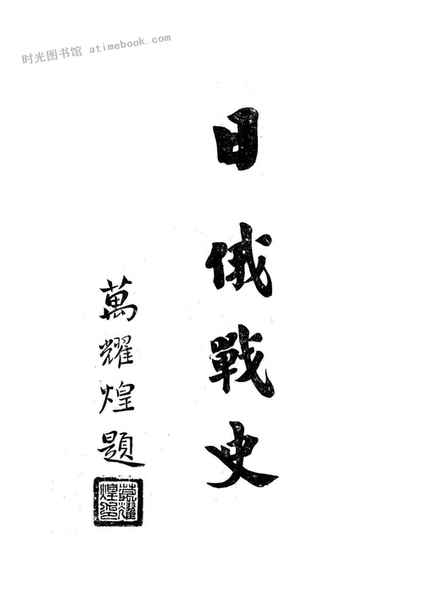 时光图书馆 atimebook.com
日俄戰史
萬耀煌題
萬耀煌印